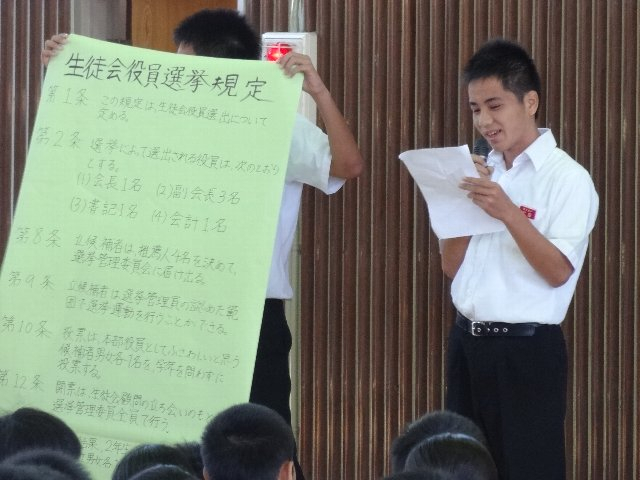 生徒会役員選挙規定
第1条 この規定は、生徒会役員選出について
定める。
第2条 選挙によって選出される役員は、次のとおり
とする。
(1)会長1名 (2)副会長3名
(3)書記1名 (4)会計1名
第8条 立候補者は、推薦人4名を決めて、
選挙管理委員会に届け出る。
第9条 立候補者は選挙管理員の認めた範
囲で選挙運動を行うことができる。
第10条 投票は、本部役員としてふさわしいと思う
候補者男女各1名を、学年を問わずに
投票する。
第12条 開票は、生徒会顧問の立ち会いのもと
選挙管理委員全員で行う。
結果、2年生
男女各